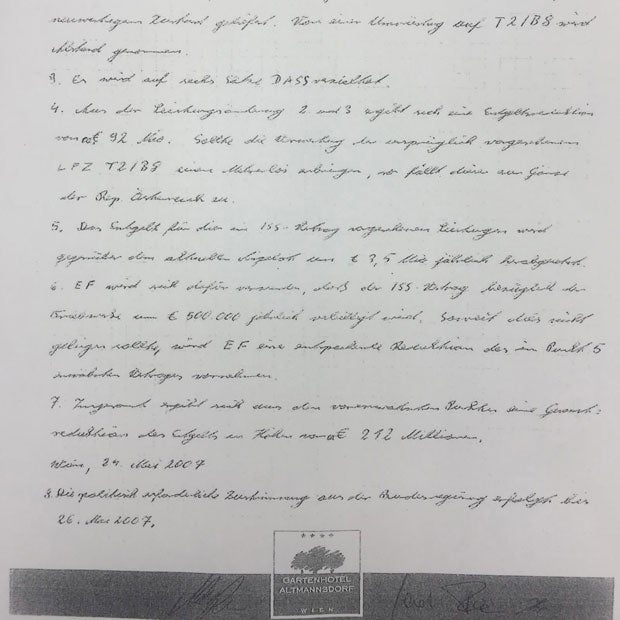 neuwertigem Zustand geliefert. Von einer Umrüstung auf T2/B8 wird
Abstand genommen.
3. Es wird auf sechs Sätze DASS verzichtet.
4. Aus der Leistungsänderung 2 und 3 ergibt sich eine Entgeltsreduktion
von € 92 Mio. Sollte die Verwertung der ursprünglich vorgesehenen
LFZ T2/B8 einen Mehrerlös erbringen, so fällt dieser zur Gänze
der Rep. Österreich zu.
5. Das Entgelt für die im ISS-Vertrag vorgesehenen Leistungen wird
gegenüber dem aktuellen Angebot um € 3,5 Mio jährlich herabgesetzt.
6. EF wird sich dafür verwenden, daß der ISS-Vertrag bezüglich der
um € 500.000 jährlich verbilligt wird. Soweit dies nicht
gelingen sollte, wird EF eine entsprechende Reduktion des im Punkt 5
erwähnten Vertrages vornehmen.
7. Insgesamt ergibt sich aus den vorerwähnten Punkten eine Gesamt-
reduktion des Entgelts in Höhe von € 212 Millionen.
Wien, 24. Mai 2007
8. Die politisch erforderliche Zustimmung aus der Bundesregierung erfolgt bis
26. Mai 2007.
GARTENHOTEL
ALTMANNSDORF
WIEN